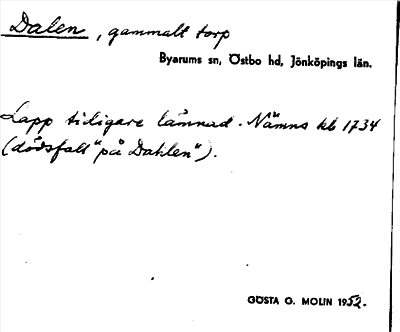 Dalen, gammalt torp
Byarums sn, Östbo hd, Jönköpings län.
Lapp tidigare lämnad. Nämns kb 1734
(dödsfall "på Dahlen").
GÖSTA G. MOLIN 1952.